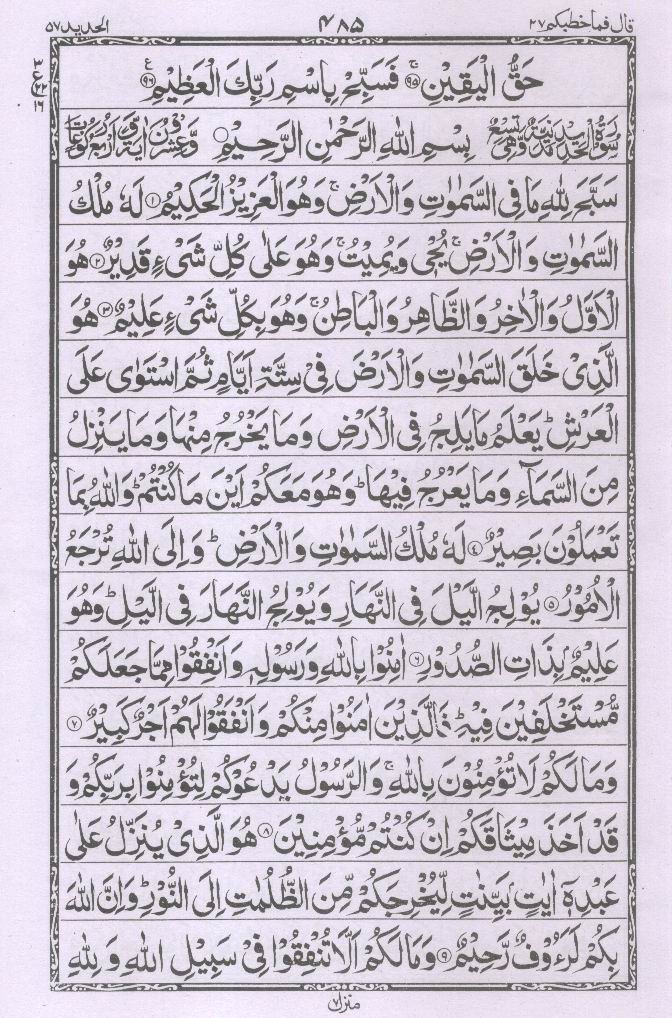 قال فما خطبكم ۲۷ ۴۸۵ الحديد ۵۷
حَقُّ الْيَقِيْنِ ۚ‏﴿۹۵﴾ فَسَبِّحْ بِاسْمِ رَبِّكَ الْعَظِيْمِ ﴿۹۶﴾
۳ ع ۲۲ ۱۶
سُوْرَةُ الْحَدِيْدِ مَدَنِيَّةٌ وَّهِيَ تِسْعٌ بِسْمِ اللّٰهِ الرَّحْمٰنِ الرَّحِيْمِ وَّعِشْرُوْنَ اٰيَةً وَّاَرْبَعُ رُكُوْعَاتٍ
سَبَّحَ لِلّٰهِ مَا فِى السَّمٰوٰتِ وَالْاَرْضِ ۚ وَهُوَ الْعَزِيْزُ الْحَكِيْمُ ﴿۱﴾ لَهٗ مُلْكُ
السَّمٰوٰتِ وَالْاَرْضِ ۚ يُحْىٖ وَيُمِيْتُ ۚ وَهُوَ عَلٰى كُلِّ شَىْءٍ قَدِيْرٌ ﴿۲﴾ هُوَ
الْاَوَّلُ وَالْاٰخِرُ وَالظَّاهِرُ وَالْبَاطِنُ ۚ وَهُوَ بِكُلِّ شَىْءٍ عَلِيْمٌ ﴿۳﴾ هُوَ
الَّذِىْ خَلَقَ السَّمٰوٰتِ وَالْاَرْضَ فِىْ سِتَّةِ اَيَّامٍ ثُمَّ اسْتَوٰى عَلَى
الْعَرْشِ ؕ يَعْلَمُ مَا يَلِجُ فِى الْاَرْضِ وَمَا يَخْرُجُ مِنْهَا وَمَا يَنْزِلُ
مِنَ السَّمَآءِ وَمَا يَعْرُجُ فِيْهَا ؕ وَهُوَ مَعَكُمْ اَيْنَ مَا كُنْتُمْ ؕ وَاللّٰهُ بِمَا
تَعْمَلُوْنَ بَصِيْرٌ ﴿۴﴾ لَهٗ مُلْكُ السَّمٰوٰتِ وَالْاَرْضِ ؕ وَاِلَى اللّٰهِ تُرْجَعُ
الْاُمُوْرُ ﴿۵﴾ يُوْلِجُ الَّيْلَ فِى النَّهَارِ وَيُوْلِجُ النَّهَارَ فِى الَّيْلِ ؕ وَهُوَ
عَلِيْمٌۢ بِذَاتِ الصُّدُوْرِ ﴿۶﴾ اٰمِنُوْا بِاللّٰهِ وَرَسُوْلِهٖ وَاَنْفِقُوْا مِمَّا جَعَلَكُمْ
مُّسْتَخْلَفِيْنَ فِيْهِ ؕ فَالَّذِيْنَ اٰمَنُوْا مِنْكُمْ وَاَنْفَقُوْا لَهُمْ اَجْرٌ كَبِيْرٌ ﴿۷﴾
وَمَا لَكُمْ لَا تُؤْمِنُوْنَ بِاللّٰهِ ۚ وَالرَّسُوْلُ يَدْعُوْكُمْ لِتُؤْمِنُوْا بِرَبِّكُمْ وَ
قَدْ اَخَذَ مِيْثَاقَكُمْ اِنْ كُنْتُمْ مُّؤْمِنِيْنَ ﴿۸﴾ هُوَ الَّذِىْ يُنَزِّلُ عَلٰى
عَبْدِهٖۤ اٰيٰتٍۭ بَيِّنٰتٍ لِّيُخْرِجَكُمْ مِّنَ الظُّلُمٰتِ اِلَى النُّوْرِ ؕ وَاِنَّ اللّٰهَ
بِكُمْ لَرَءُوْفٌ رَّحِيْمٌ ﴿۹﴾ وَمَا لَكُمْ اَلَّا تُنْفِقُوْا فِىْ سَبِيْلِ اللّٰهِ وَلِلّٰهِ
منزل ۷